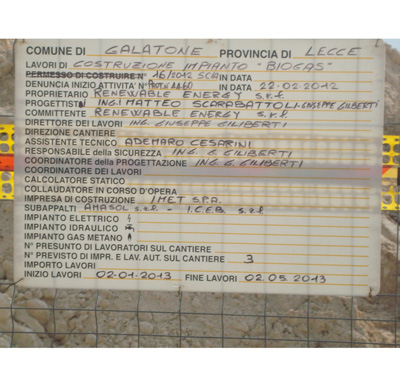 COMUNE DI GALATONE PROVINCIA DI LECCE
LAVORI DI COSTRUZIONE IMPIANTO "BIOGAS"
PERMESSO DI COSTRUIRE N° 16/2012 SCIA IN DATA
DENUNCIA INIZIO ATTIVITA' N° IN DATA 22-02-2012
PROPRIETARIO RENEWABLE ENERGY s.r.l.
PROGETTISTI ING. MATTEO SCARABATTOLI - GIUSEPPE GILIBERTI
COMMITTENTE RENEWABLE ENERGY s.r.l.
DIRETTORE DEI LAVORI ING. GIUSEPPE GILIBERTI
DIREZIONE CANTIERE
ASSISTENTE TECNICO ADEMARO CESARINI
RESPONSABILE della SICUREZZA ING G. GILIBERTI
COORDINATORE della PROGETTAZIONE ING. G. GILIBERTI
COORDINATORE DEI LAVORI
CALCOLATORE STATICO
COLLAUDATORE IN CORSO D'OPERA
IMPRESA DI COSTRUZIONE IMET S.P.A.
SUBAPPALTI AMASOL s.r.l. - I.C.E.B. s.r.l.
IMPIANTO ELETTRICO
IMPIANTO IDRAULICO
IMPIANTO GAS METANO
N° PRESUNTO DI LAVORATORI SUL CANTIERE
N° PREVISTO DI IMPR. E LAV. AUT. SUL CANTIERE 3
IMPORTO LAVORI
INIZIO LAVORI 02-01-2013 FINE LAVORI 02.05.2013